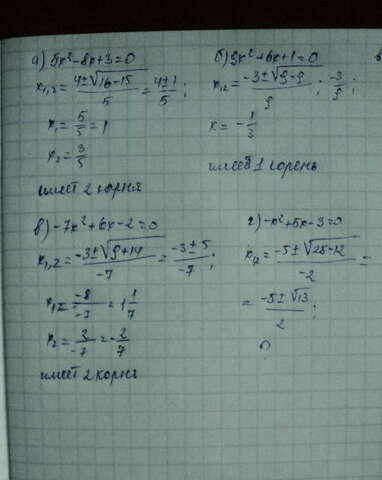 а) 5x²-8x+3=0
x₁,₂ = (4±√(16-15))/5 = (4±1)/5;
x₁ = 5/5 = 1
x₂ = 3/5
имеет 2 корня
б) 9x²+6x+1=0
x₁,₂ = (-3±√(9-9))/9; -3/9;
x = -1/3
имеет 1 корень
в) -7x²+6x-2=0
x₁,₂ = (-3±√(9+14))/-7 = (-3±5)/-7;
x₁ = -8/-7 = 1 1/7
x₂ = 2/-7 = -2/7
имеет 2 корня
г) -x²+5x-3=0
x₁,₂ = (-5±√(25-12))/-2 =
= (-5±√13)/2;